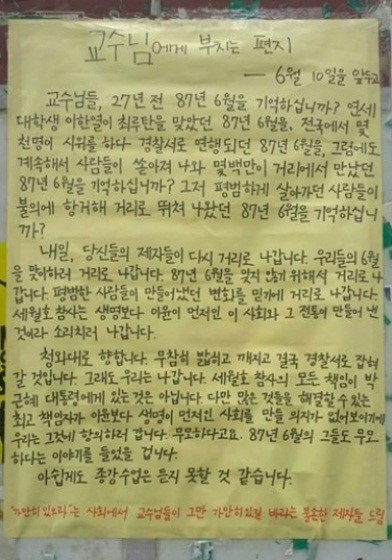 교수님에게 부치는 편지
— 6월 10일을 앞두고
교수님들, 27년 전 87년 6월을 기억하십니까? 연세
대학생 이한열이 최루탄을 맞았던 87년 6월을, 전국에서 몇
천명이 시위를 하다 경찰서로 연행되던 87년 6월을, 그럼에도
계속해서 사람들이 쏟아져 나와 몇백만이 거리에서 만났던
87년 6월을 기억하십니까? 그저 평범하게 살아가던 사람들이
불의에 항거해 거리로 뛰쳐 나왔던 87년 6월을 기억하십니
까?
내일, 당신들의 제자들이 다시 거리로 나갑니다. 우리들의 6월
을 맞이하러 거리로 나갑니다. 87년 6월을 잊지 않기 위해서 거리로 나
갑니다. 평범한 사람들이 만들어냈던 변화를 믿기에 거리로 나갑니다.
세월호 참사는 생명보다 이윤이 먼저인 이 사회와 그 전통이 만들어 낸
것이라 소리치러 나갑니다.
청와대로 향합니다. 무참히 밟히고 깨지고 결국 경찰서로 잡혀
갈 것입니다. 그래도 우리는 나갑니다. 세월호 참사의 모든 책임이 박
근혜 대통령에게 있는 것은 아닙니다. 다만 많은 것들을 해결할 수 있는
최고 책임자가 이윤보다 생명이 먼저인 사회를 만들 의지가 없어보이기에
우리는 그것에 항의하러 갑니다. 무모하다고요. 87년 6월의 그들도 무모
하다는 이야기를 들었을 겁니다.
아쉽게도 종강수업은 듣지 못할 것 같습니다.
"가만히 있으라"는 사회에서 교수님들이 그만 가만히 있길 바라는 불손한 제자들 드림